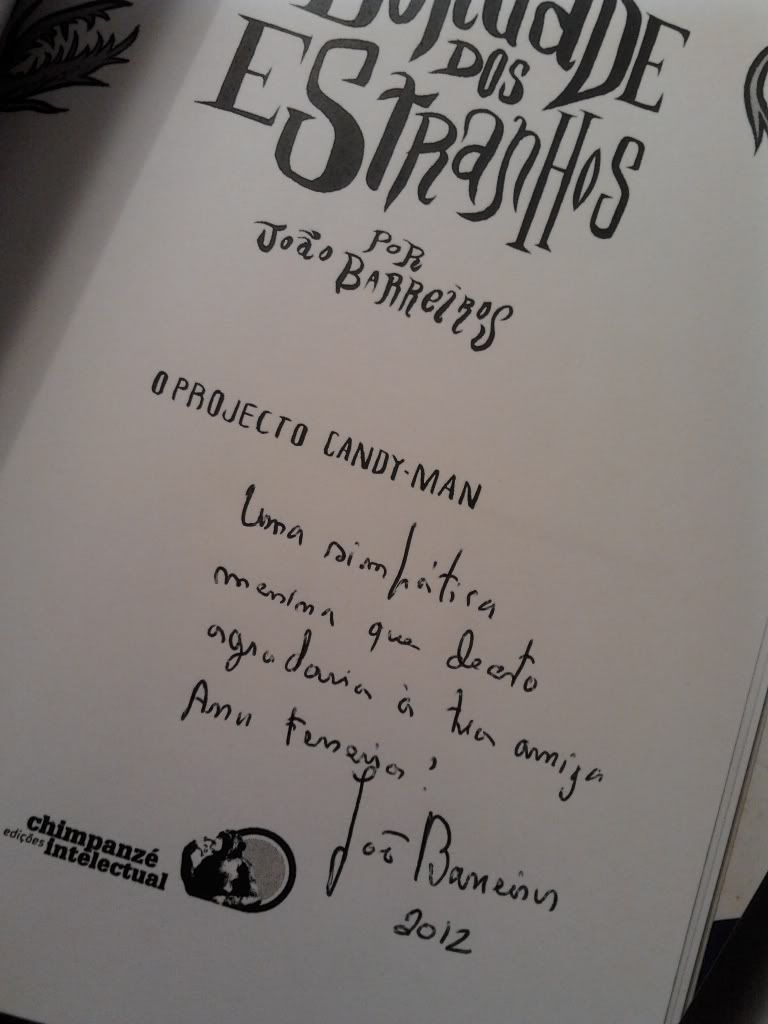 BONDADE
DOS
ESTRANHOS
POR
JOÃO BARREIROS
O PROJECTO CANDY-MAN
Uma simpática
menina que decerto
agradaria à tua amiga
Ana Ferreira!
João Barreiros
2012
chimpanzé
edições intelectual